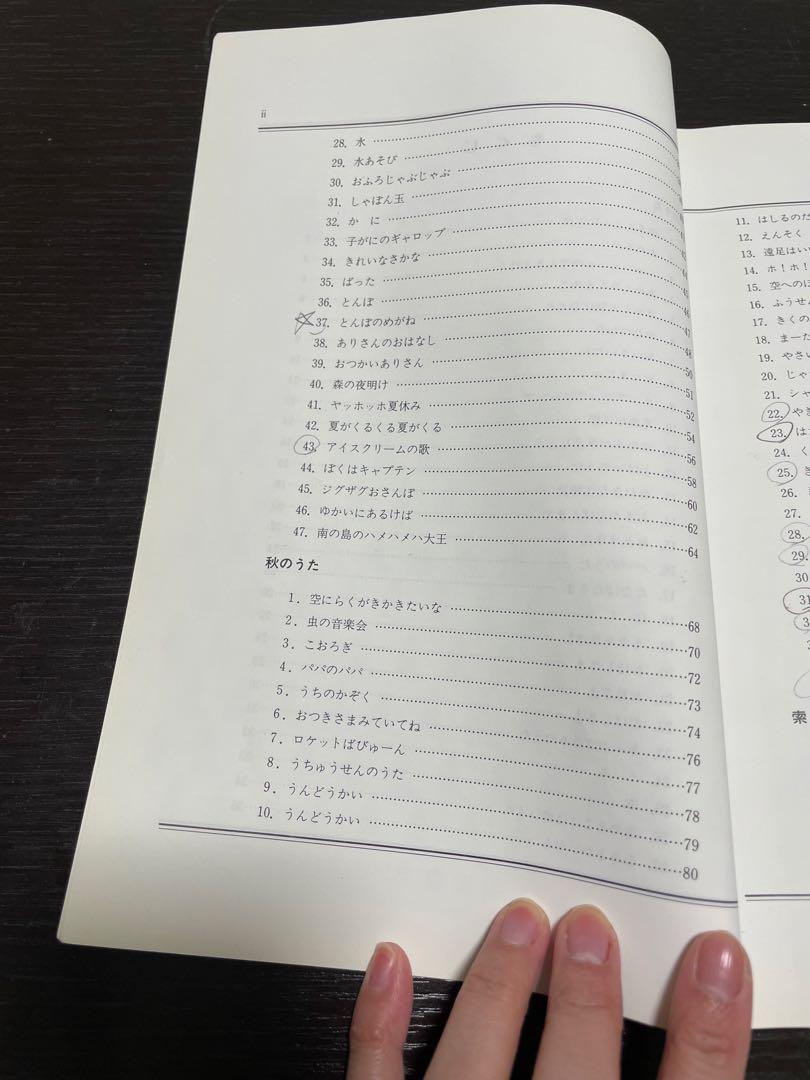 ii
28. 水
29. 水あそび
30. おふろじゃぶじゃぶ
31. しゃぼん玉
32. か に
33. 子がにのギャロップ
34. きれいなさかな ……44
35. ばった ……45
36. とんぼ ……46
37. とんぼのめがね ……47
38. ありさんのおはなし ……48
39. おつかいありさん ……50
40. 森の夜明け ……51
41. ヤッホッホ夏休み ……52
42. 夏がくるくる夏がくる ……54
43. アイスクリームの歌 ……56
44. ぼくはキャプテン ……58
45. ジグザグおさんぽ ……60
46. ゆかいにあるけば ……62
47. 南の島のハメハメハ大王 ……64
秋のうた
1. 空にらくがきかきたいな ……68
2. 虫の音楽会 ……70
3. こおろぎ ……72
4. パパのパパ ……73
5. うちのかぞく ……74
6. おつきさまみていてね ……76
7. ロケットばびゅーん ……77
8. うちゅうせんのうた ……78
9. うんどうかい ……79
10. うんどうかい ……80
11. はしるのだ
12. えんそく
13. 遠足はい
14. ホ！ホ！
15. 空への
16. ふうせん
17. きくの
18. まーた
19. やさい
20. じゃ
21. シャ
22. やき
23. は
24. く
25. き
26.
27.
28.
29.
30
31
索